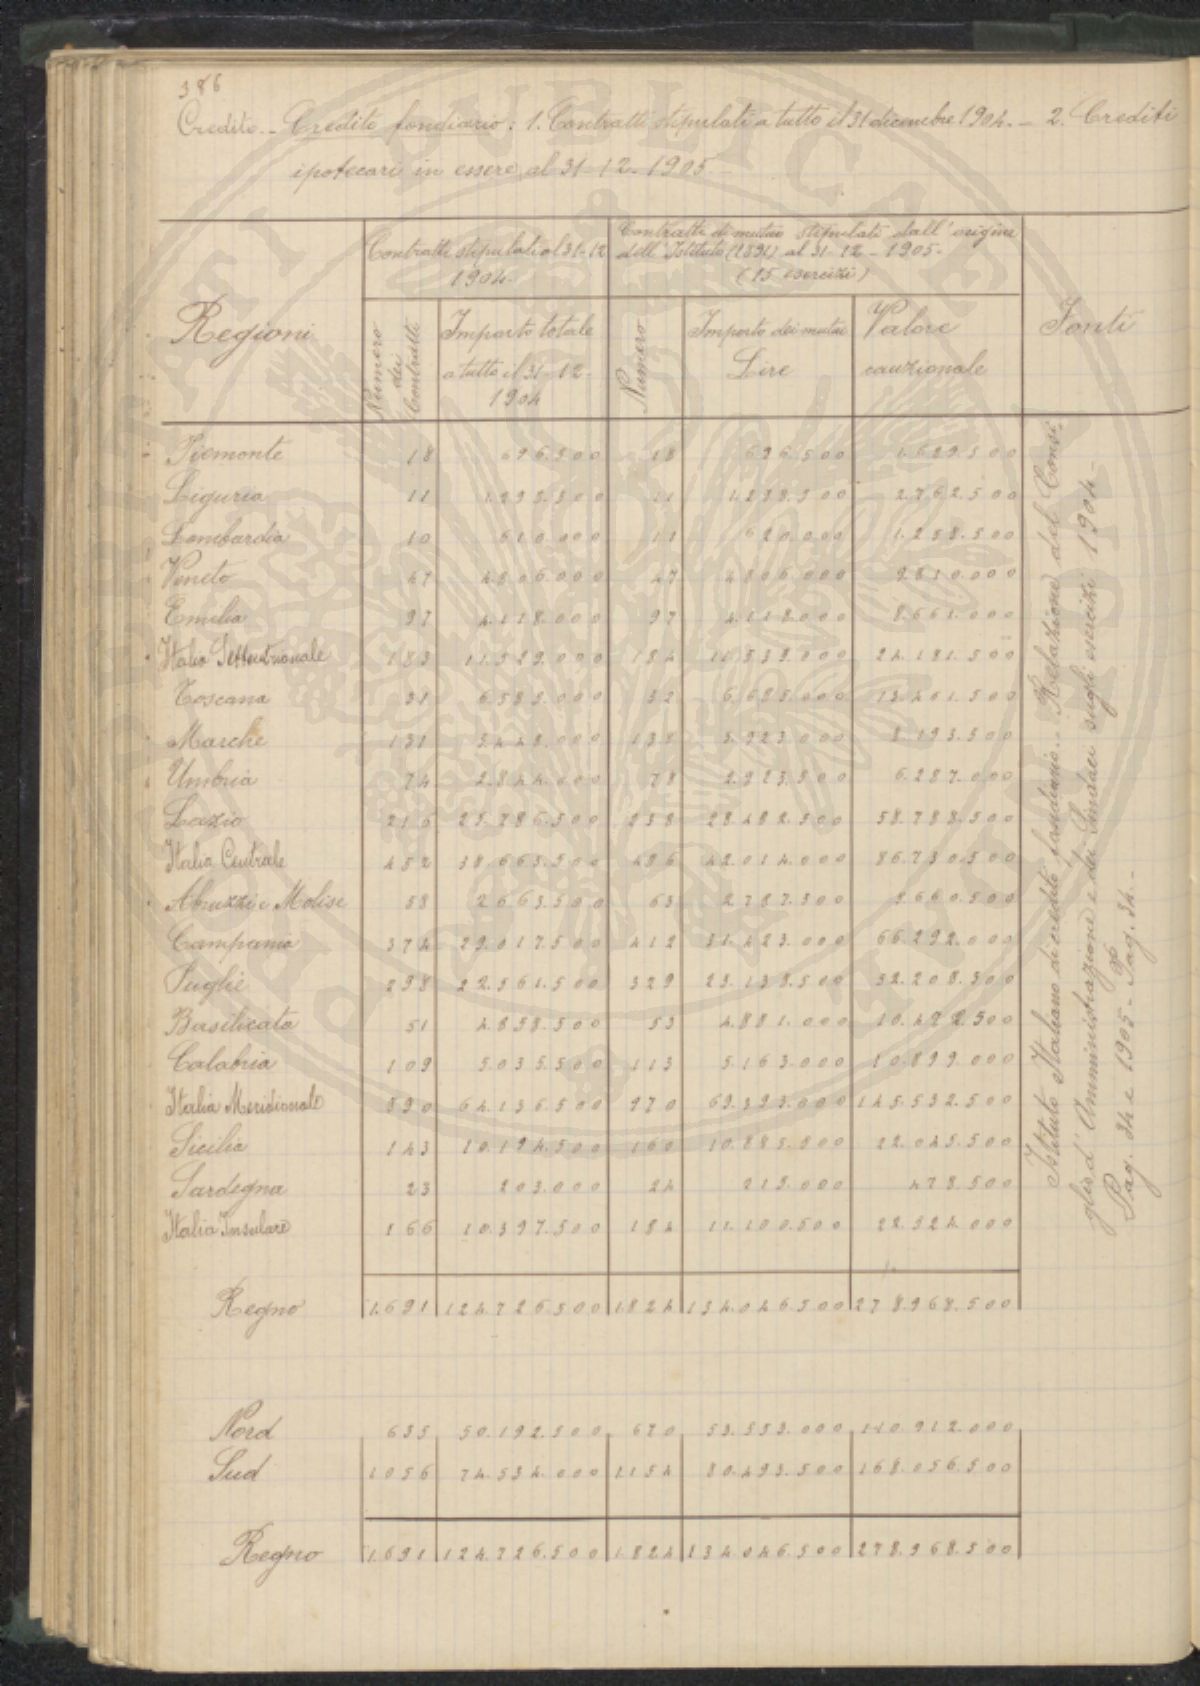 386
Credito. - Credito fondiario: 1. Contratti stipulati a tutto il 31 dicembre 1904. - 2. Crediti
ipotecari in essere al 31-12-1905 -
Regioni
Contratti stipulati al 31-12
1904.
Contratti di mutuo stipulati dall'origine
dell'Istituto (1891) al 31-12-1905-
(15 esercizi)
Fonti
Numero
dei
Contratti
Importo totale
a tutto il 31-12-
1904
Numero
Importo dei mutui
Lire
Valore
cauzionale
Piemonte 18 696.500 18 696.500 1.689.500
Liguria 11 1.298.500 11 1.298.500 2.762.500
Lombardia 10 610.000 11 620.000 1.258.500
Veneto 47 4.806.000 47 4.806.000 9.810.000
Emilia 97 4.118.000 97 4.118.000 8.661.000
Italia Settentrionale 183 11.529.000 184 11.539.000 24.181.500
Toscana 31 6.585.000 32 6.625.000 13.461.500
Marche 131 138 8.193.500
Umbria 74 2.844.000 78 6.287.000
Lazio 216 25.786.500 238 28.482.500 58.788.500
Italia Centrale 452 38.663.500 486 42.014.000 86.730.500
Abruzzi e Molise 58 2.663.500 63 2.787.500 5.660.500
Campania 374 29.017.500 412 31.423.000 66.292.000
Puglie 298 22.561.500 329 25.138.500 52.208.500
Basilicata 51 4.858.500 53 4.881.000 10.472.500
Calabria 109 5.035.500 113 5.163.000 10.899.000
Italia Meridionale 890 64.136.500 970 69.393.000 145.532.500
Sicilia 143 10.194.500 160 10.885.500 22.045.500
Sardegna 23 203.000 24 215.000 478.500
Italia Insulare 166 10.397.500 184 11.100.500 22.524.000
Regno 1.691 124.726.500 1.824 134.046.500 278.968.500
Nord 635 50.192.500 670 53.553.000 110.912.000
Sud 1056 74.534.000 1.154 80.493.500 168.056.500
Regno 1.691 124.726.500 1.824 134.046.500 278.968.500
Istituto Italiano di credito fondiario. - Relazione del Consi-
glio d'Amministrazione e dei Sindaci sugli esercizi 1904 -
Pag. 34 e 1905 - Pag. 34. -